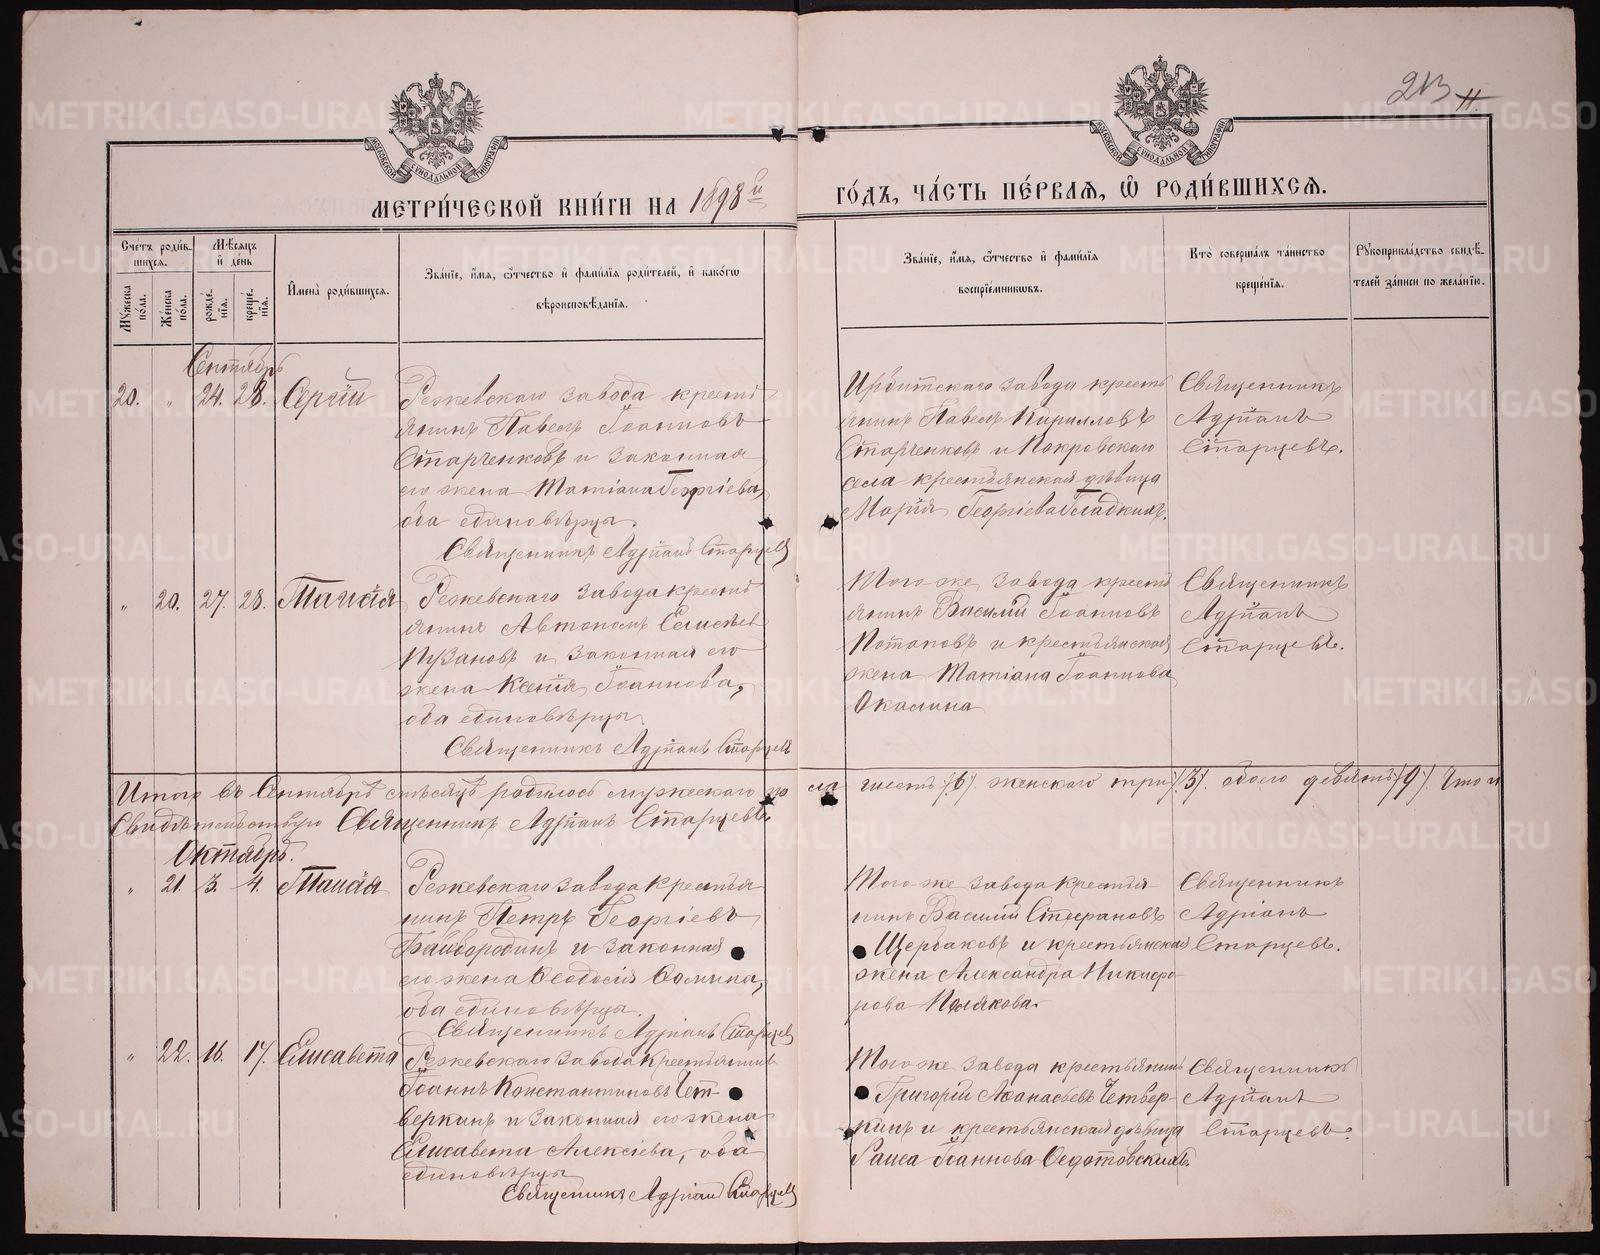 213 11.
МОСКОВСКОЙ СИНОДАЛЬНОЙ ТИПОГРАФІИ
МОСКОВСКОЙ СИНОДАЛЬНОЙ ТИПОГРАФІИ
МЕТРИ́ЧЕСКОЙ КНИ́ГИ НА 1898й ГО́ДЪ, ЧА́СТЬ ПЕ́РВАѦ, Ѡ҆ РОДИ́ВШИХСѦ.
Сче́тъ роди́в-
шихсѧ.
Мѣ́сѧцъ
и҆ де́нь
Мꙋ́жеска
по́ла.
Же́нска
по́ла.
рожде́-
нїѧ.
креще́-
нїѧ.
И҆мена̀ роди́вшихсѧ.
Зва́нїе, и҆́мѧ, ѻ҆́тчество и҆ фами́лїѧ роди́телей, и҆ како́гѡ
вѣроисповѣ́данїѧ.
Зва́нїе, и҆́мѧ, ѻ҆́тчество и҆ фами́лїѧ
воспрїе́мникѡвъ.
Кто̀ соверша́лъ та́инство
креще́нїѧ.
Рꙋкоприкла́дство свидѣ́-
телей за́писи по жела́нїю.
Сентябрь
20. „ 24. 28. Сергій
Режевского завода кресть
янинъ Павелъ Іоанновъ
Старченковъ и законная
его жена Татіана Георгіева,
оба единовѣрцы.
Священникъ Адріанъ Старцевъ
Ирбитскаго завода кресть
янинъ Павелъ Кирилловъ
Старченковъ и Покровскаго
села крестьянская дѣвица
Марія Георгіева Гладкихъ.
Священникъ
Адріанъ
Старцевъ.
„ 20. 27. 28. Таисія
Режевскаго завода кресть
янинъ Автономъ Елисѣев
Пузановъ и законная его
жена Ксенія Іоаннова,
оба единовѣрцы.
Священникъ Адріанъ Старцевъ
Того же завода кресть
янинъ Василій Іоанновъ
Потаповъ и крестьянская
жена Татіана Іоаннова
Окасина
Священникъ
Адріанъ
Старцевъ.
Итого въ Сентябрѣ мѣсяцѣ родилось мужескаго по ла шесть /6/ женскаго три /3/. обоего девять /9/. Что и
Свидѣтельствую Священникъ Адріанъ Старцевъ.
Октябрь.
„ 21. 3. 4. Таисія
Режевскаго завода крестья
нинъ Петръ Георгіевъ
Байбородинъ и законная
его жена Ѳеодосія Ѳомина,
оба единовѣрцы.
Священникъ Адріанъ Старцев
Того же завода крестья
нинъ Василій Стефановъ
Щербаковъ и крестьянская
жена Александра Никифо
рова Полякова.
Священникъ
Адріанъ
Старцевъ.
„ 22. 16. 17. Елисавета
Режевскаго завода крестьянинъ
Іоаннъ Константиновъ Чет-
веркинъ и законная его жена
Елисавета Алексіева, оба
единовѣрцы
Священникъ Адріанъ Старцев
Того же завода крестьянинъ
Григорій Аѳанасьевъ Четвер-
кинъ и крестьянская дѣвица
Раиса Іоаннова Ѳедотовскихъ.
Священникъ
Адріанъ
Старцевъ.
METRIKI.GASO-URAL.RU